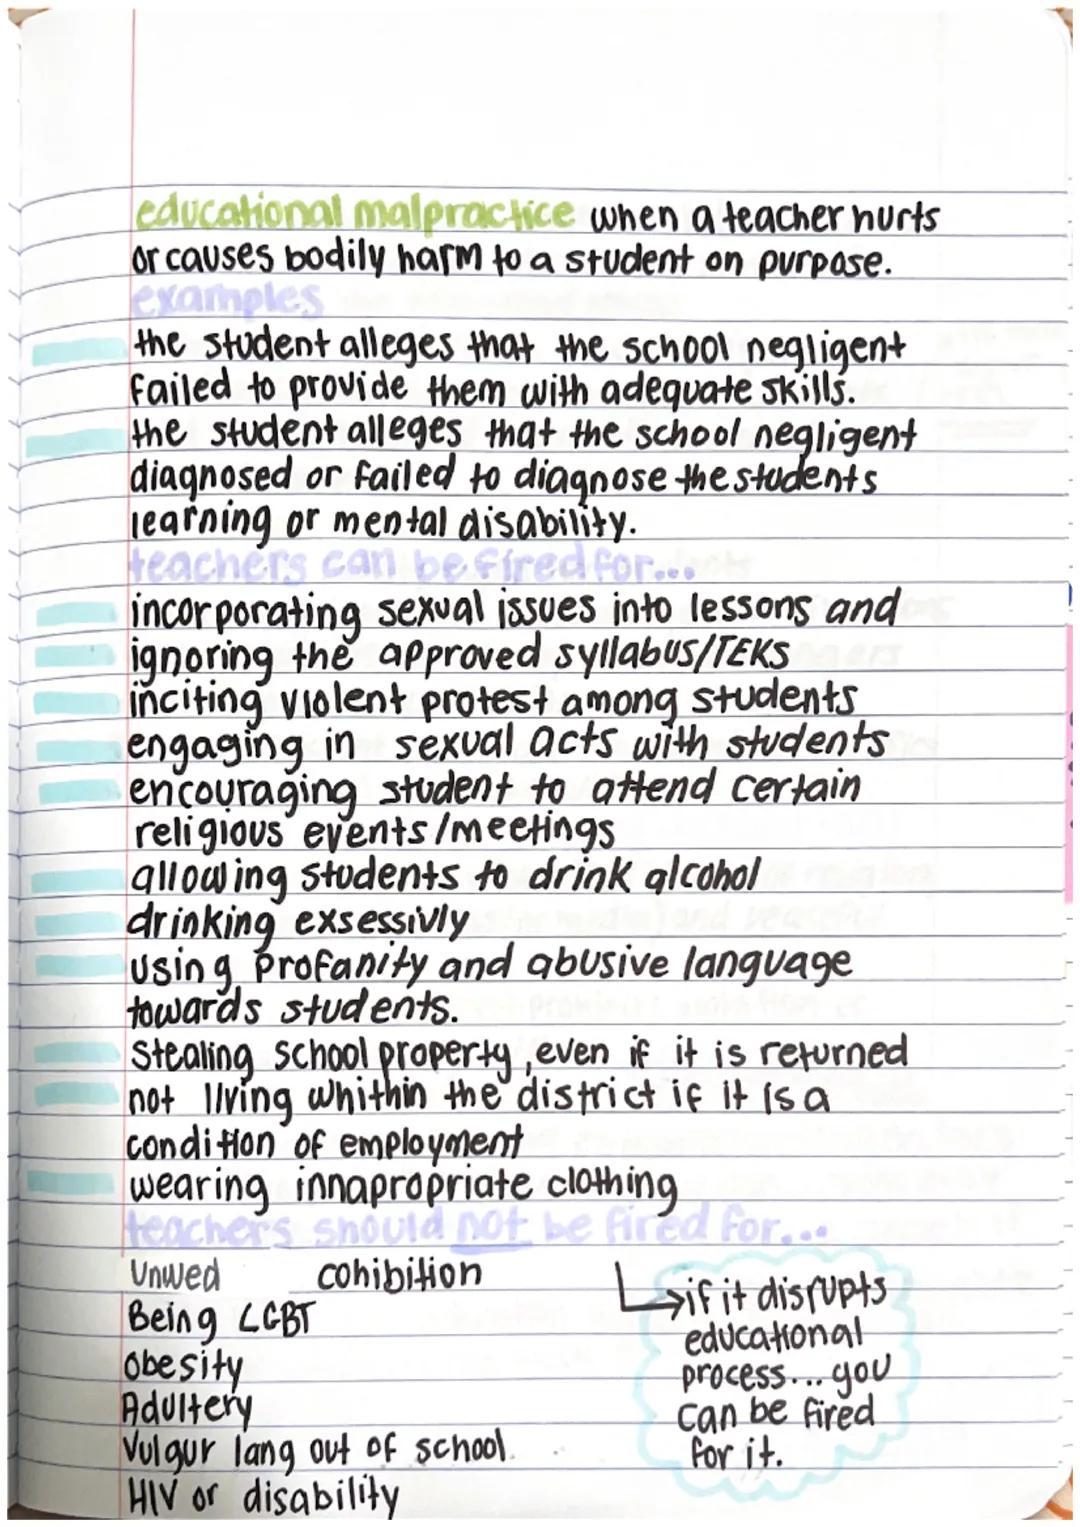 educational malpractice when a teacher hurts
or causes bodily harm to a student on purpose.
examples
the student alleges that the school negligent
failed to provide them with adequate skills.
the student alleges that the school negligent
diagnosed or failed to diagnose the students
learning or mental disability.
teachers can be fired for...
incorporating sexual issues into lessons and
ignoring the approved syllabus/TEKS
inciting violent protest among students
engaging in sexual acts with students
encouraging student to attend certain
religious events/meetings
allowing students to drink alcohol
drinking exsessivly
using profanity and abusive language
towards students.
Stealing school property, even if it is returned
not living whithin the district if it is a
condition of employment
wearing innapropriate clothing
teachers should not be fired for...
Unwed cohibition
Being LGBT
obesity
Adultery
Vulgur lang out of school.
HIV or disability
if it disrupts
educational
process... you
can be fired
for it.